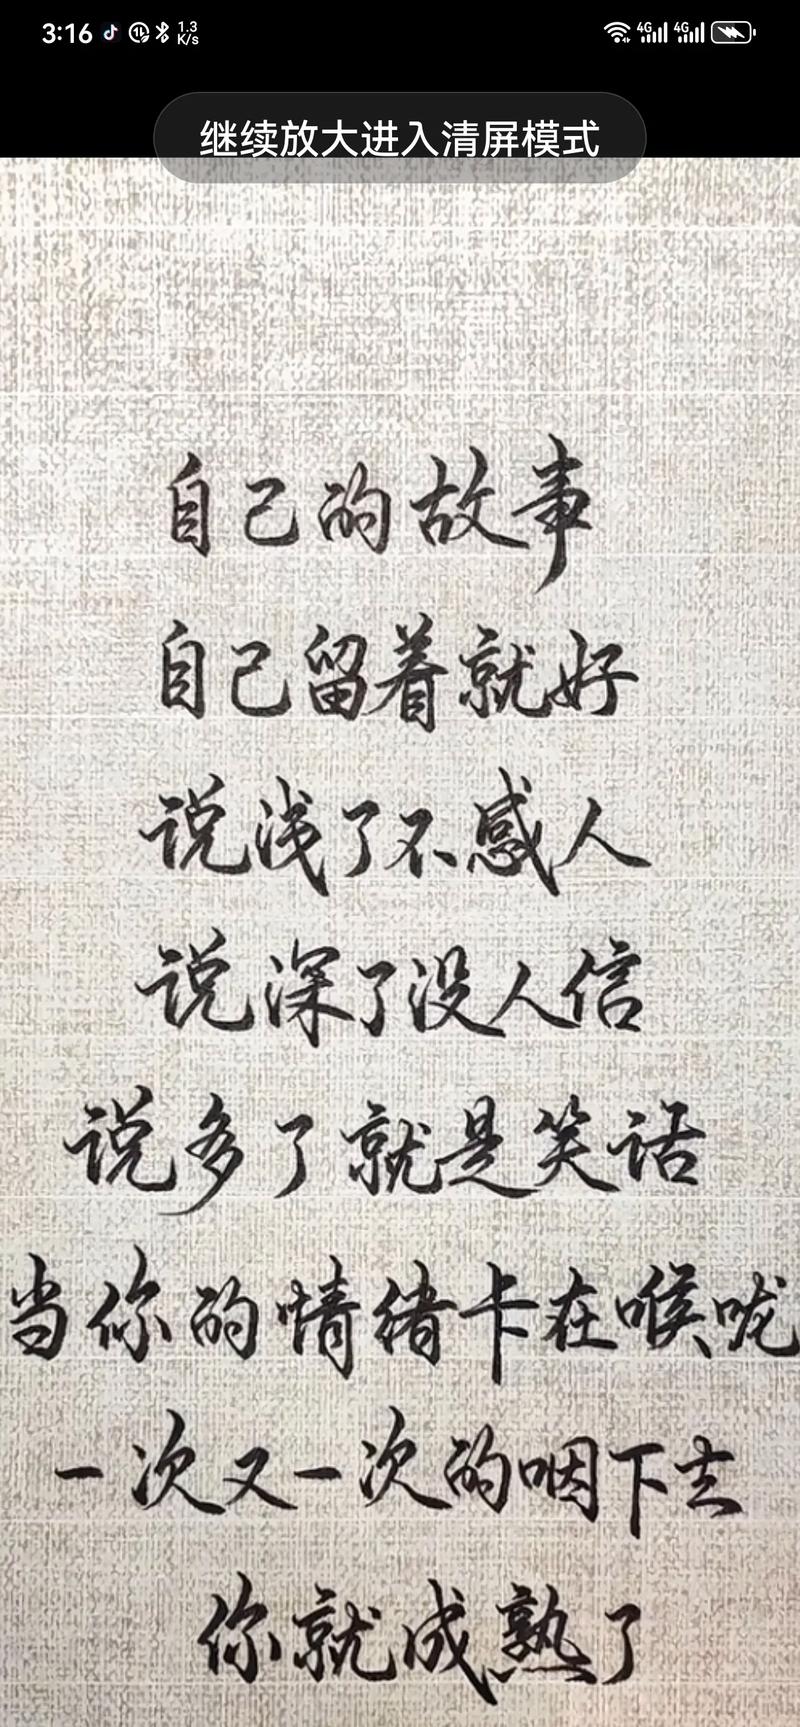 3:16 1.3 K/s 4G 4G
继续放大进入清屏模式
自己的故事
自己留着就好
说浅了不感人
说深了没人信
说多了就是笑话
当你的情绪卡在喉咙
一次又一次的咽下去
你就成熟了